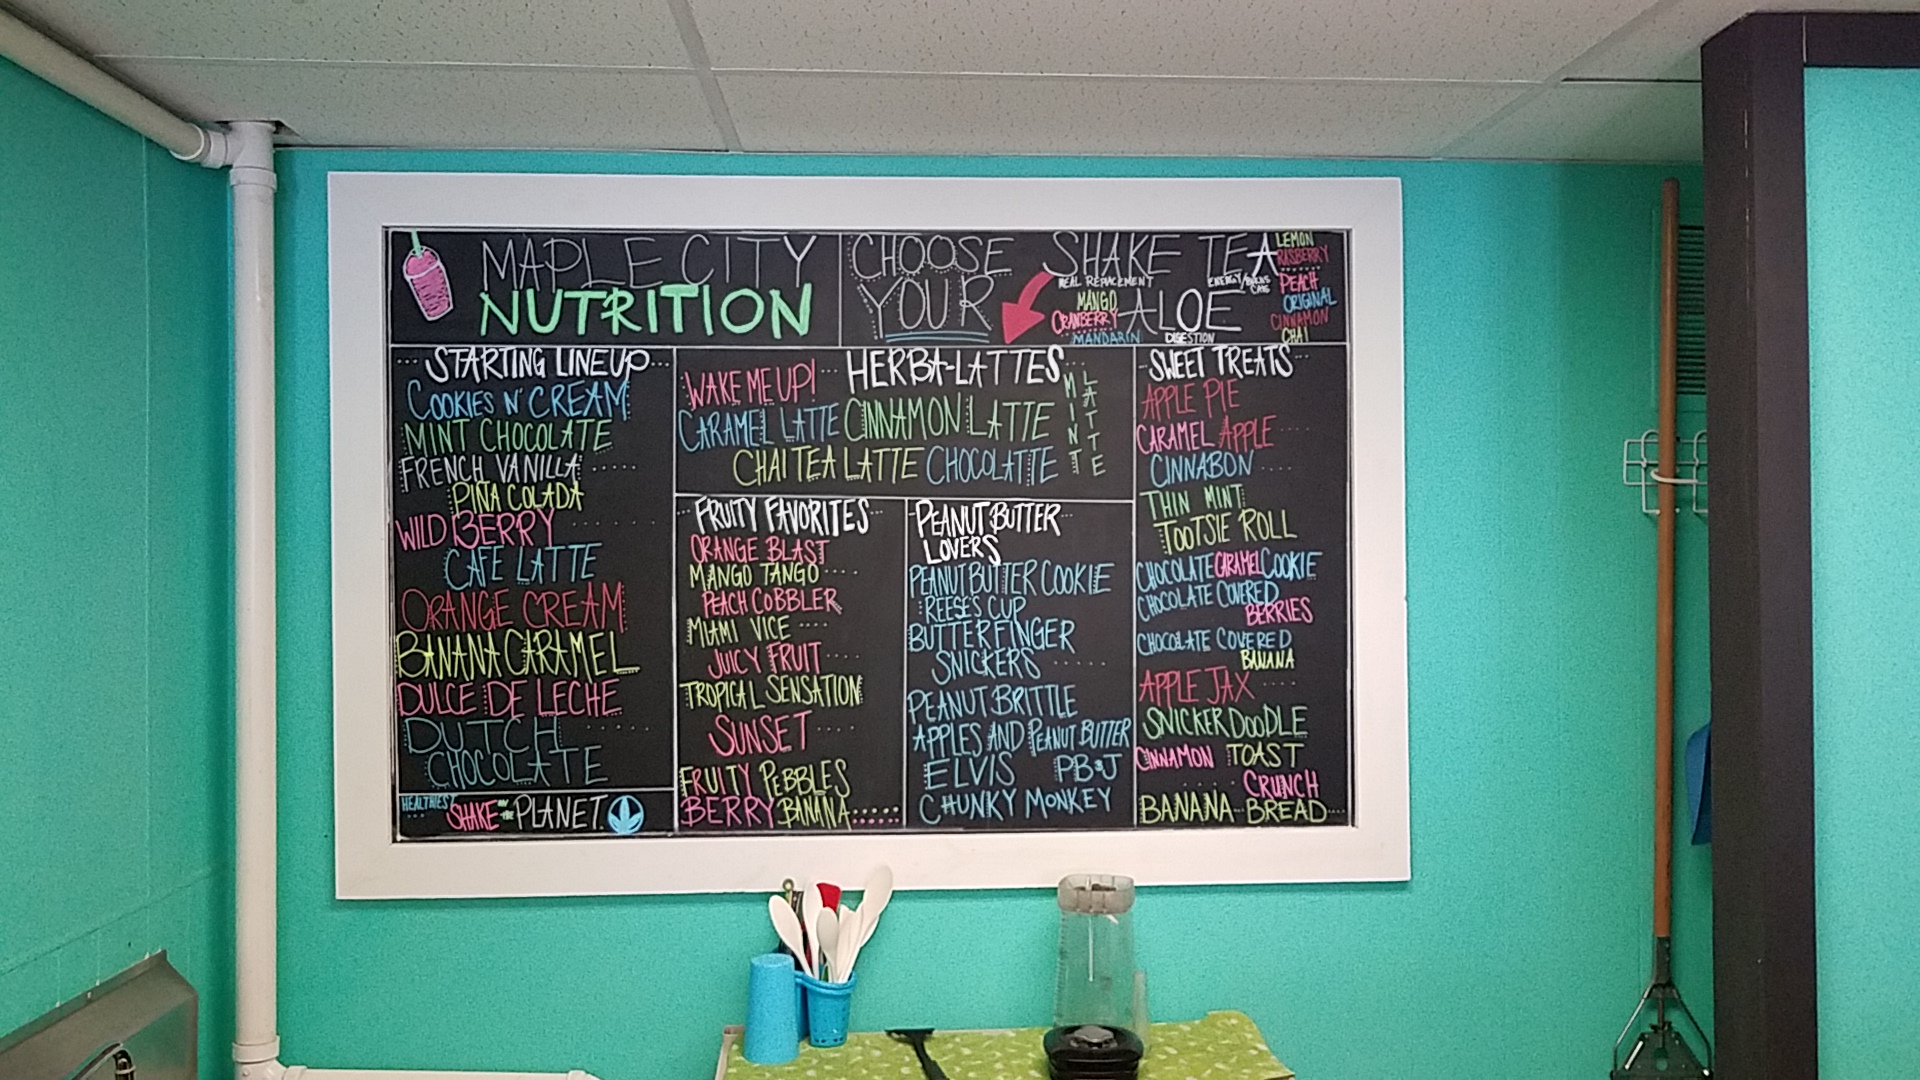 MAPLE CITY
NUTRITION
CHOOSE
YOUR
SHAKE
MEAL REPLACEMENT
TEA
ALOE
DIGESTION
MANGO
CRANBERRY
MANDARIN
LEMON
RASBERRY
PEACH
ORIGINAL
CINNAMON
CHAI
STARTING LINEUP
COOKIES N' CREAM
MINT CHOCOLATE
FRENCH VANILLA
PIÑA COLADA
WILD BERRY
CAFE LATTE
ORANGE CREAM
BANANA CARAMEL
DULCE DE LECHE
DUTCH
CHOCOLATE
HEALTHIEST
SHAKE ON THE PLANET
HERBA-LATTES
WAKE ME UP!
CARAMEL LATTE CINNAMON LATTE
CHAI TEA LATTE CHOCOLATTE
MINT
LATTE
FRUITY FAVORITES
ORANGE BLAST
MANGO TANGO
PEACH COBBLER
MIAMI VICE
JUICY FRUIT
TROPICAL SENSATION
SUNSET
FRUITY PEBBLES
BERRY BANANA
PEANUT BUTTER
LOVERS
PEANUT BUTTER COOKIE
REESE'S CUP
BUTTERFINGER
SNICKERS
PEANUT BRITTLE
APPLES AND PEANUT BUTTER
ELVIS PB&J
CHUNKY MONKEY
SWEET TREATS
APPLE PIE
CARAMEL APPLE
CINNABON
THIN MINT
TOOTSIE ROLL
CHOCOLATE CARAMEL COOKIE
CHOCOLATE COVERED
BERRIES
CHOCOLATE COVERED
BANANA
APPLE JAX
SNICKERDOODLE
CINNAMON TOAST
CRUNCH
BANANA BREAD